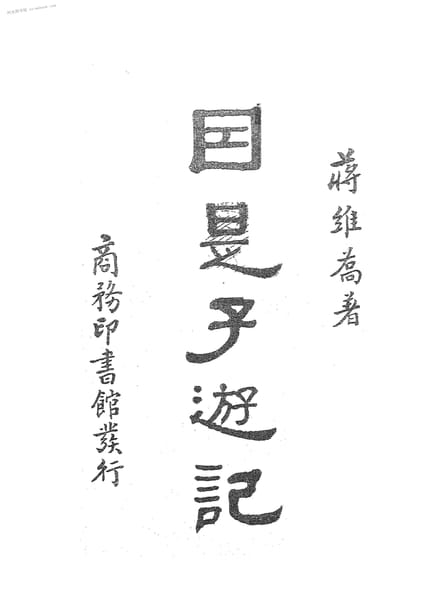 蔣維喬著
因是子遊記
商務印書館發行